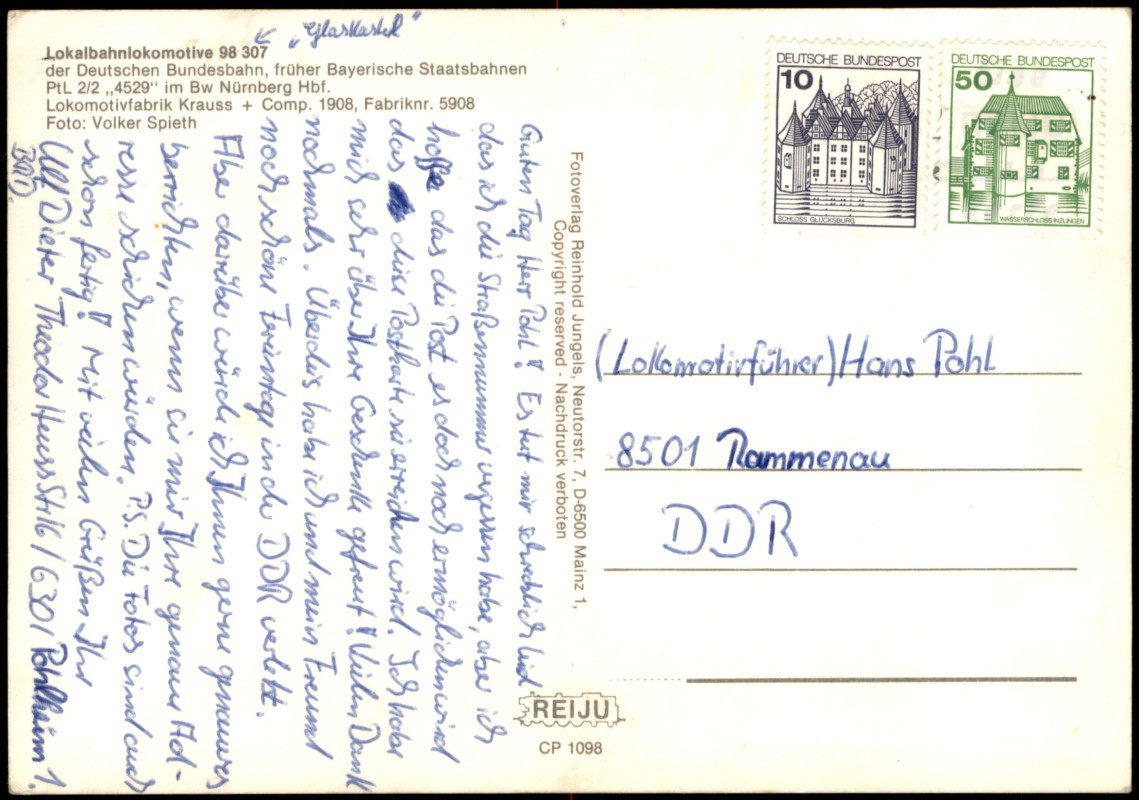 „Glaskasten"
Lokalbahnlokomotive 98 307
der Deutschen Bundesbahn, früher Bayerische Staatsbahnen
PtL 2/2 „4529" im Bw Nürnberg Hbf.
Lokomotivfabrik Krauss + Comp. 1908, Fabriknr. 5908
Foto: Volker Spieth
Guten Tag Herr Pohl! Es tut mir schrecklich leid
das ich die Straßennummer vergessen habe, aber ich
hoffe das die Post es doch noch ermöglichen wird
das diese Postkarte sie erreichen wird. Ich habe
mich sehr über Ihre Geschenke gefreut! Vielen Dank
nochmals. Überdies habe ich und mein Freund
noch schöne Ferientage in der DDR verlebt.
Aber darüber würde ich Ihnen gerne genaueres
berichten, wenn sie mir Ihre genaue Ad-
resse schicken würden. P.S. Die Fotos sind auch
schon fertig! Mit vielen Grüßen Ihr
Ulf Dieter Theodor Heuss Str.16/6301 Pohlheim 1.
BRD
Fotoverlag Reinhold Jungels, Neutorstr. 7, D-6500 Mainz 1,
Copyright reserved - Nachdruck verboten
REIJU
CP 1098
DEUTSCHE BUNDESPOST
10
SCHLOSS GLÜCKSBURG
DEUTSCHE BUNDESPOST
50
WASSERSCHLOSS INZLINGEN
(Lokomotivführer) Hans Pohl
8501 Rammenau
DDR